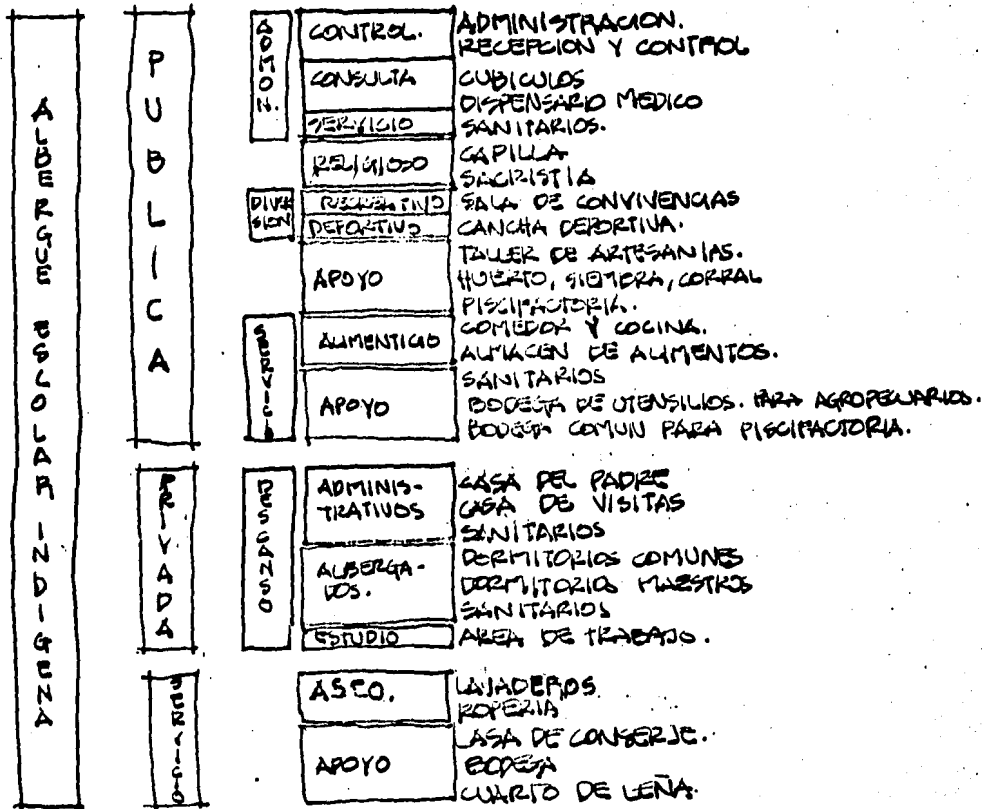 ALBERGUE ESCOLAR INDIGENA
PUBLICA
ADMON.
CONTROL.
ADMINISTRACION.
RECEPCION Y CONTROL
CONSULTA
CUBICULOS
DISPENSARIO MEDICO
SERVICIO
SANITARIOS.
RELIGIOSO
CAPILLA
SACRISTIA
DIVERSION
RECREATIVO
SALA DE CONVIVENCIAS
DEPORTIVO
CANCHA DEPORTIVA.
APOYO
TALLER DE ARTESANIAS.
HUERTO, SIEMBRA, CORRAL
PISCIFACTORIA.
SERVICIO
ALIMENTICIO
COMEDOR Y COCINA.
ALMACEN DE ALIMENTOS.
APOYO
SANITARIOS
BODEGA DE UTENSILIOS. PARA AGROPECUARIOS.
BODEGA COMUN PARA PISCIFACTORIA.
PRIVADA
DESCANSO
ADMINIS-
TRATIVOS
CASA DEL PADRE
CASA DE VISITAS
SANITARIOS
ALBERGA-
DOS.
DERMITORIOS COMUNES
DORMITORIOS MAESTROS
SANITARIOS
ESTUDIO
AREA DE TRABAJO.
SERVICIO
ASEO.
LAVADEROS
ROPERIA
APOYO
CASA DE CONSERJE.
BODEGA
CUARTO DE LEÑA.